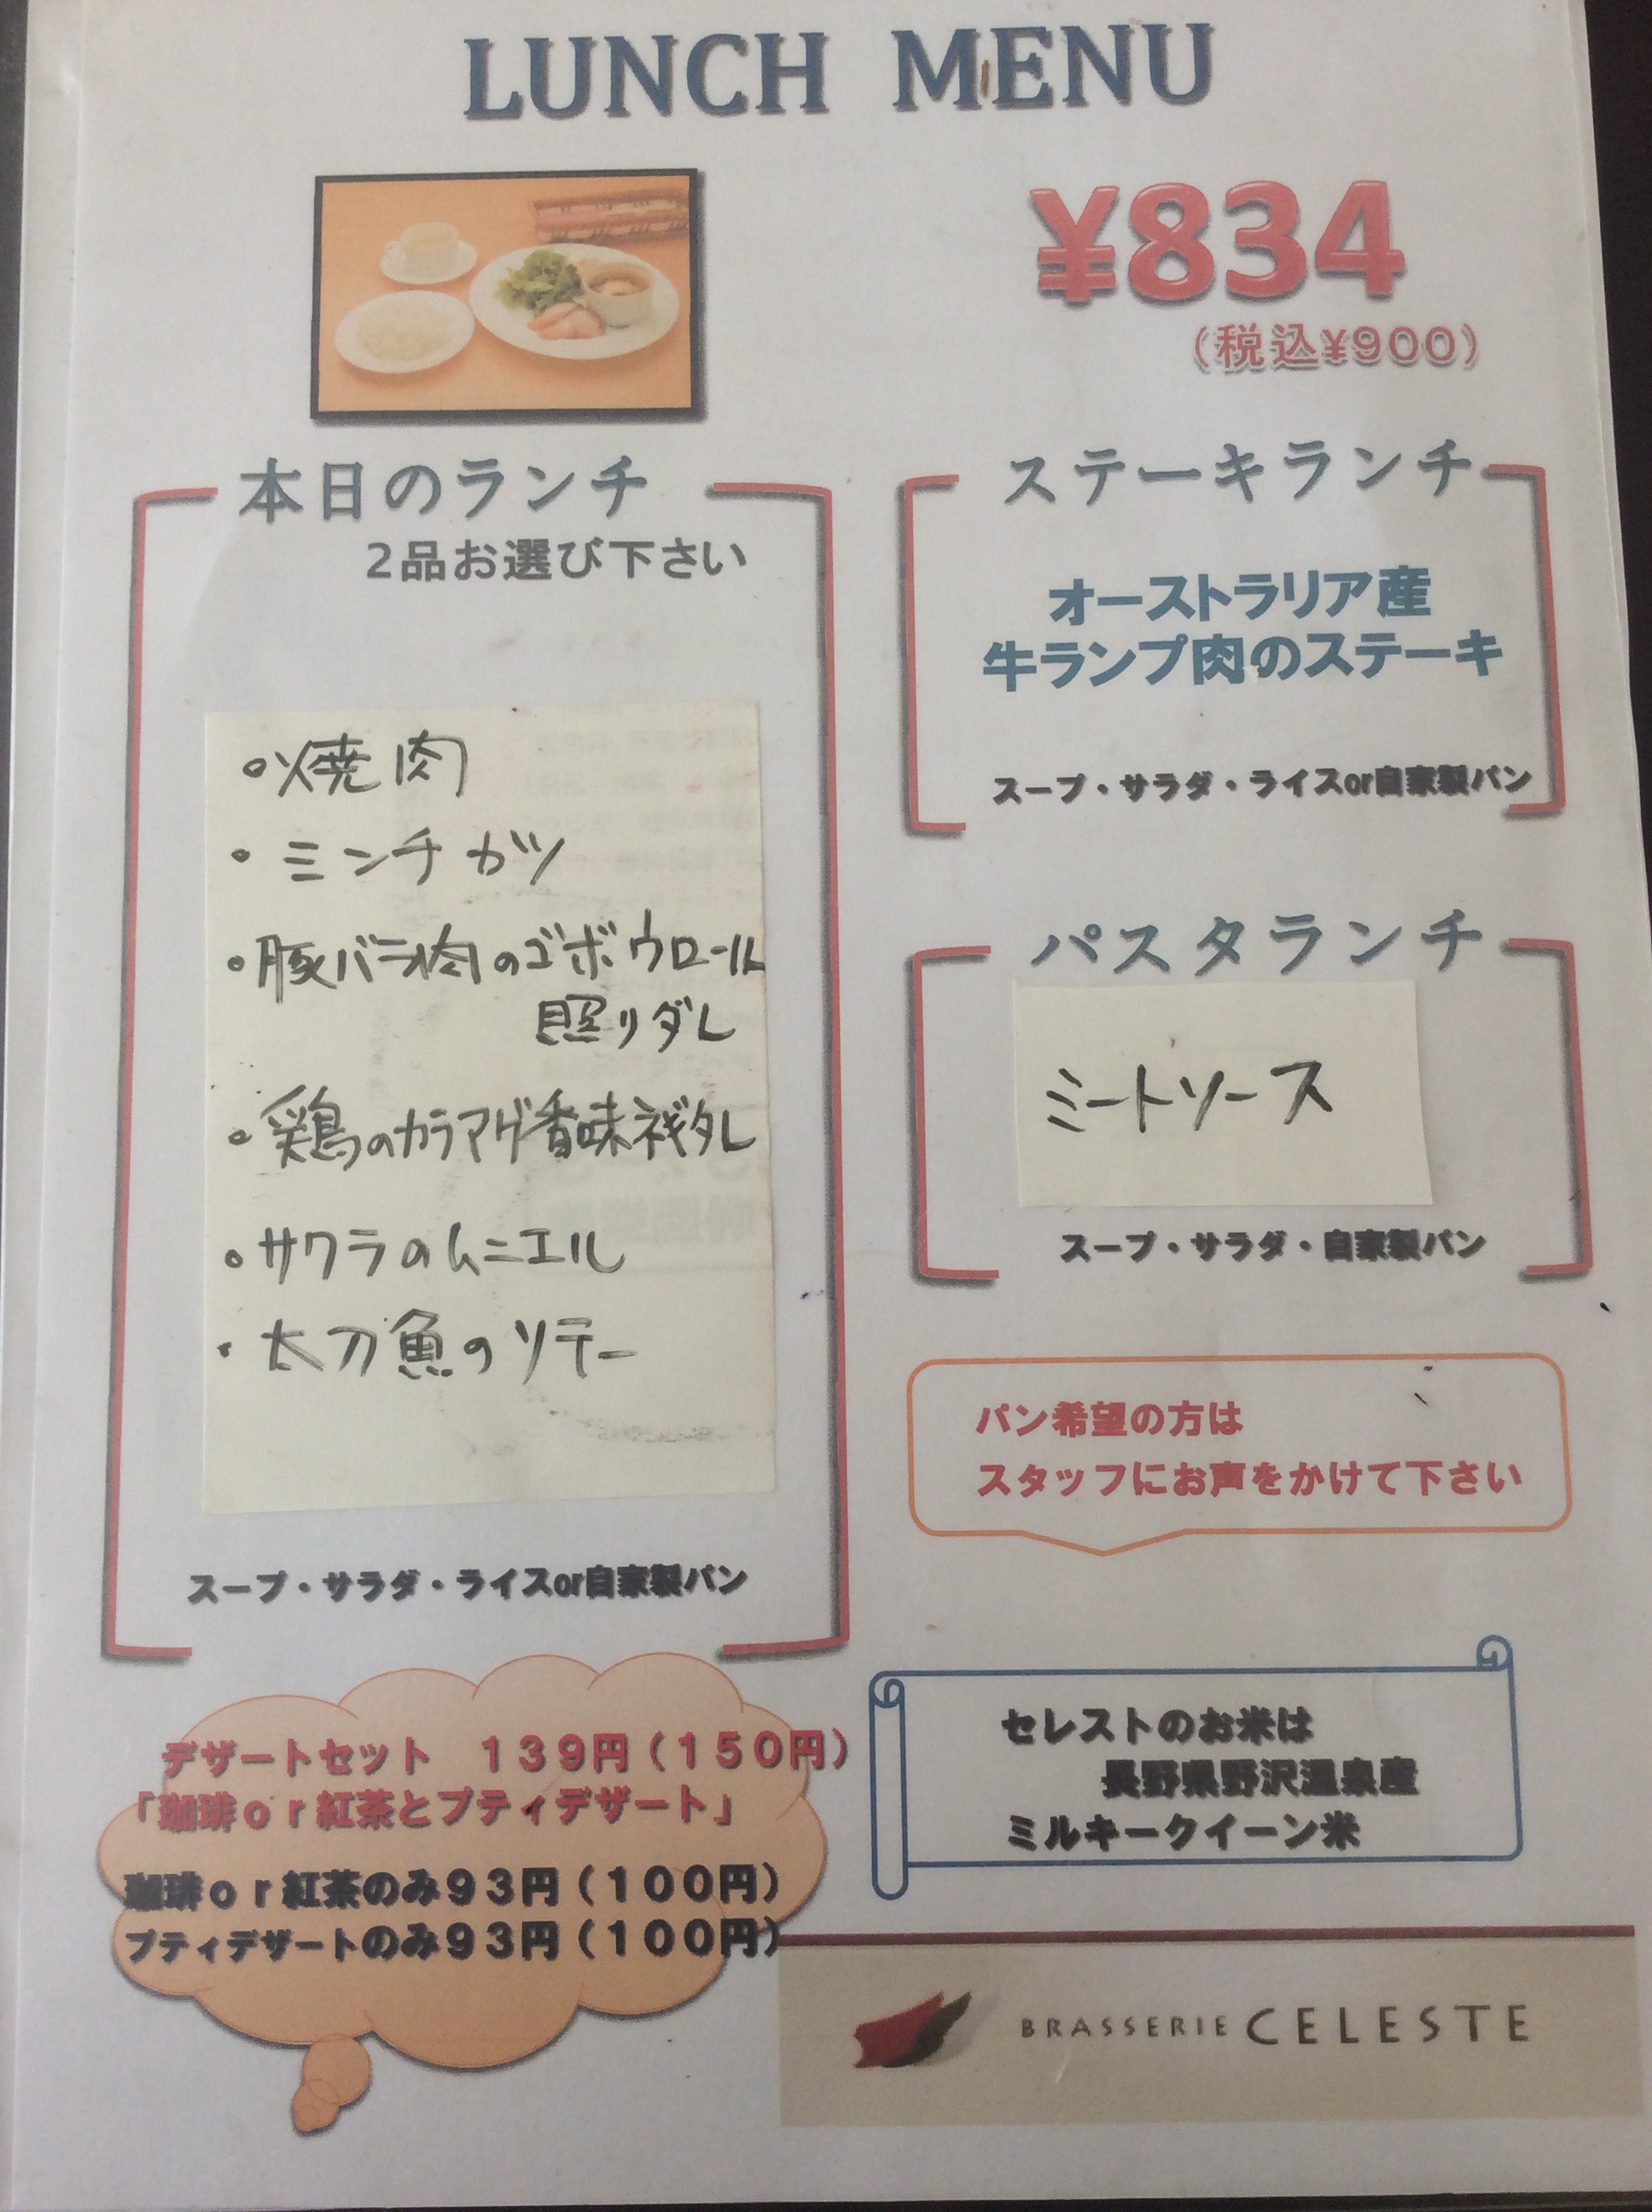 LUNCH MENU
¥834
(税込¥900)
本日のランチ
2品お選び下さい
・焼肉
・ミンチカツ
・豚バラ肉のゴボウロール
照リダレ
・鶏のカラアゲ香味ネギタレ
・サワラのムニエル
・太刀魚のソテー
スープ・サラダ・ライスor自家製パン
ステーキランチ
オーストラリア産
牛ランプ肉のステーキ
スープ・サラダ・ライスor自家製パン
パスタランチ
ミートソース
スープ・サラダ・自家製パン
パン希望の方は
スタッフにお声をかけて下さい
デザートセット 139円(150円)
「珈琲or紅茶とプティデザート」
珈琲or紅茶のみ93円(100円)
プティデザートのみ93円(100円)
セレストのお米は
長野県野沢温泉産
ミルキークイーン米
BRASSERIE CELESTE